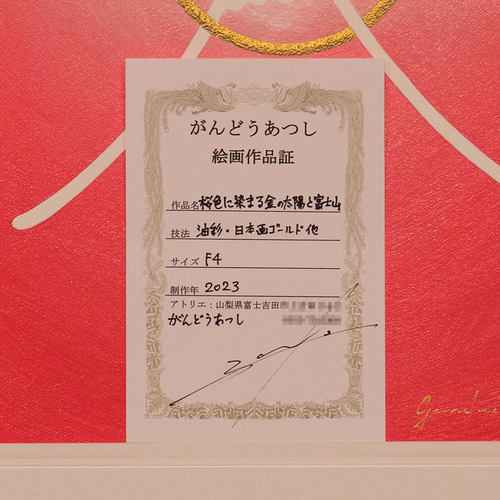 がんどうあつし
絵画作品証
作品名 桜色に染まる金の太陽と富士山
技法 油彩・日本画ゴールド他
サイズ F4
制作年 2023
アトリエ:山梨県富士吉田
がんどうあつし